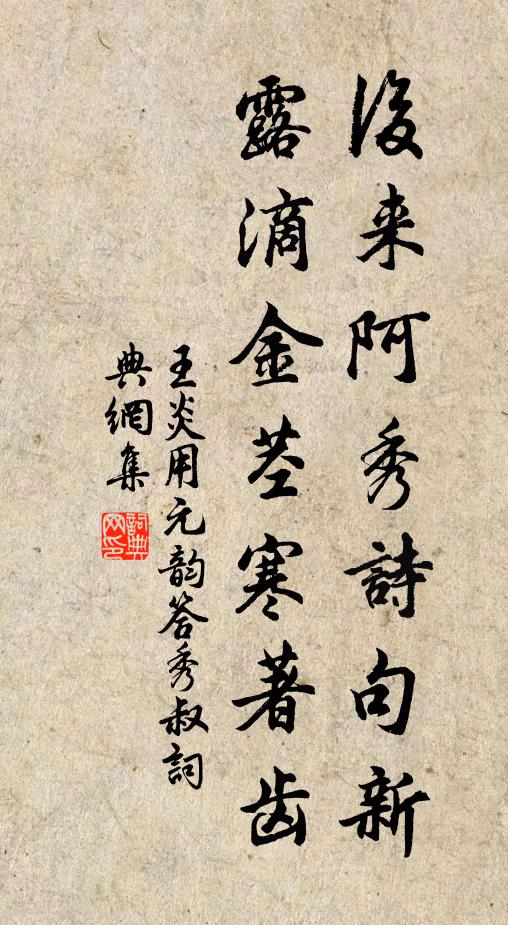 後来阿秀詩句新
露滴金茎寒著齿
王炎用元韵答秀叔詞
典網集
詞典网印